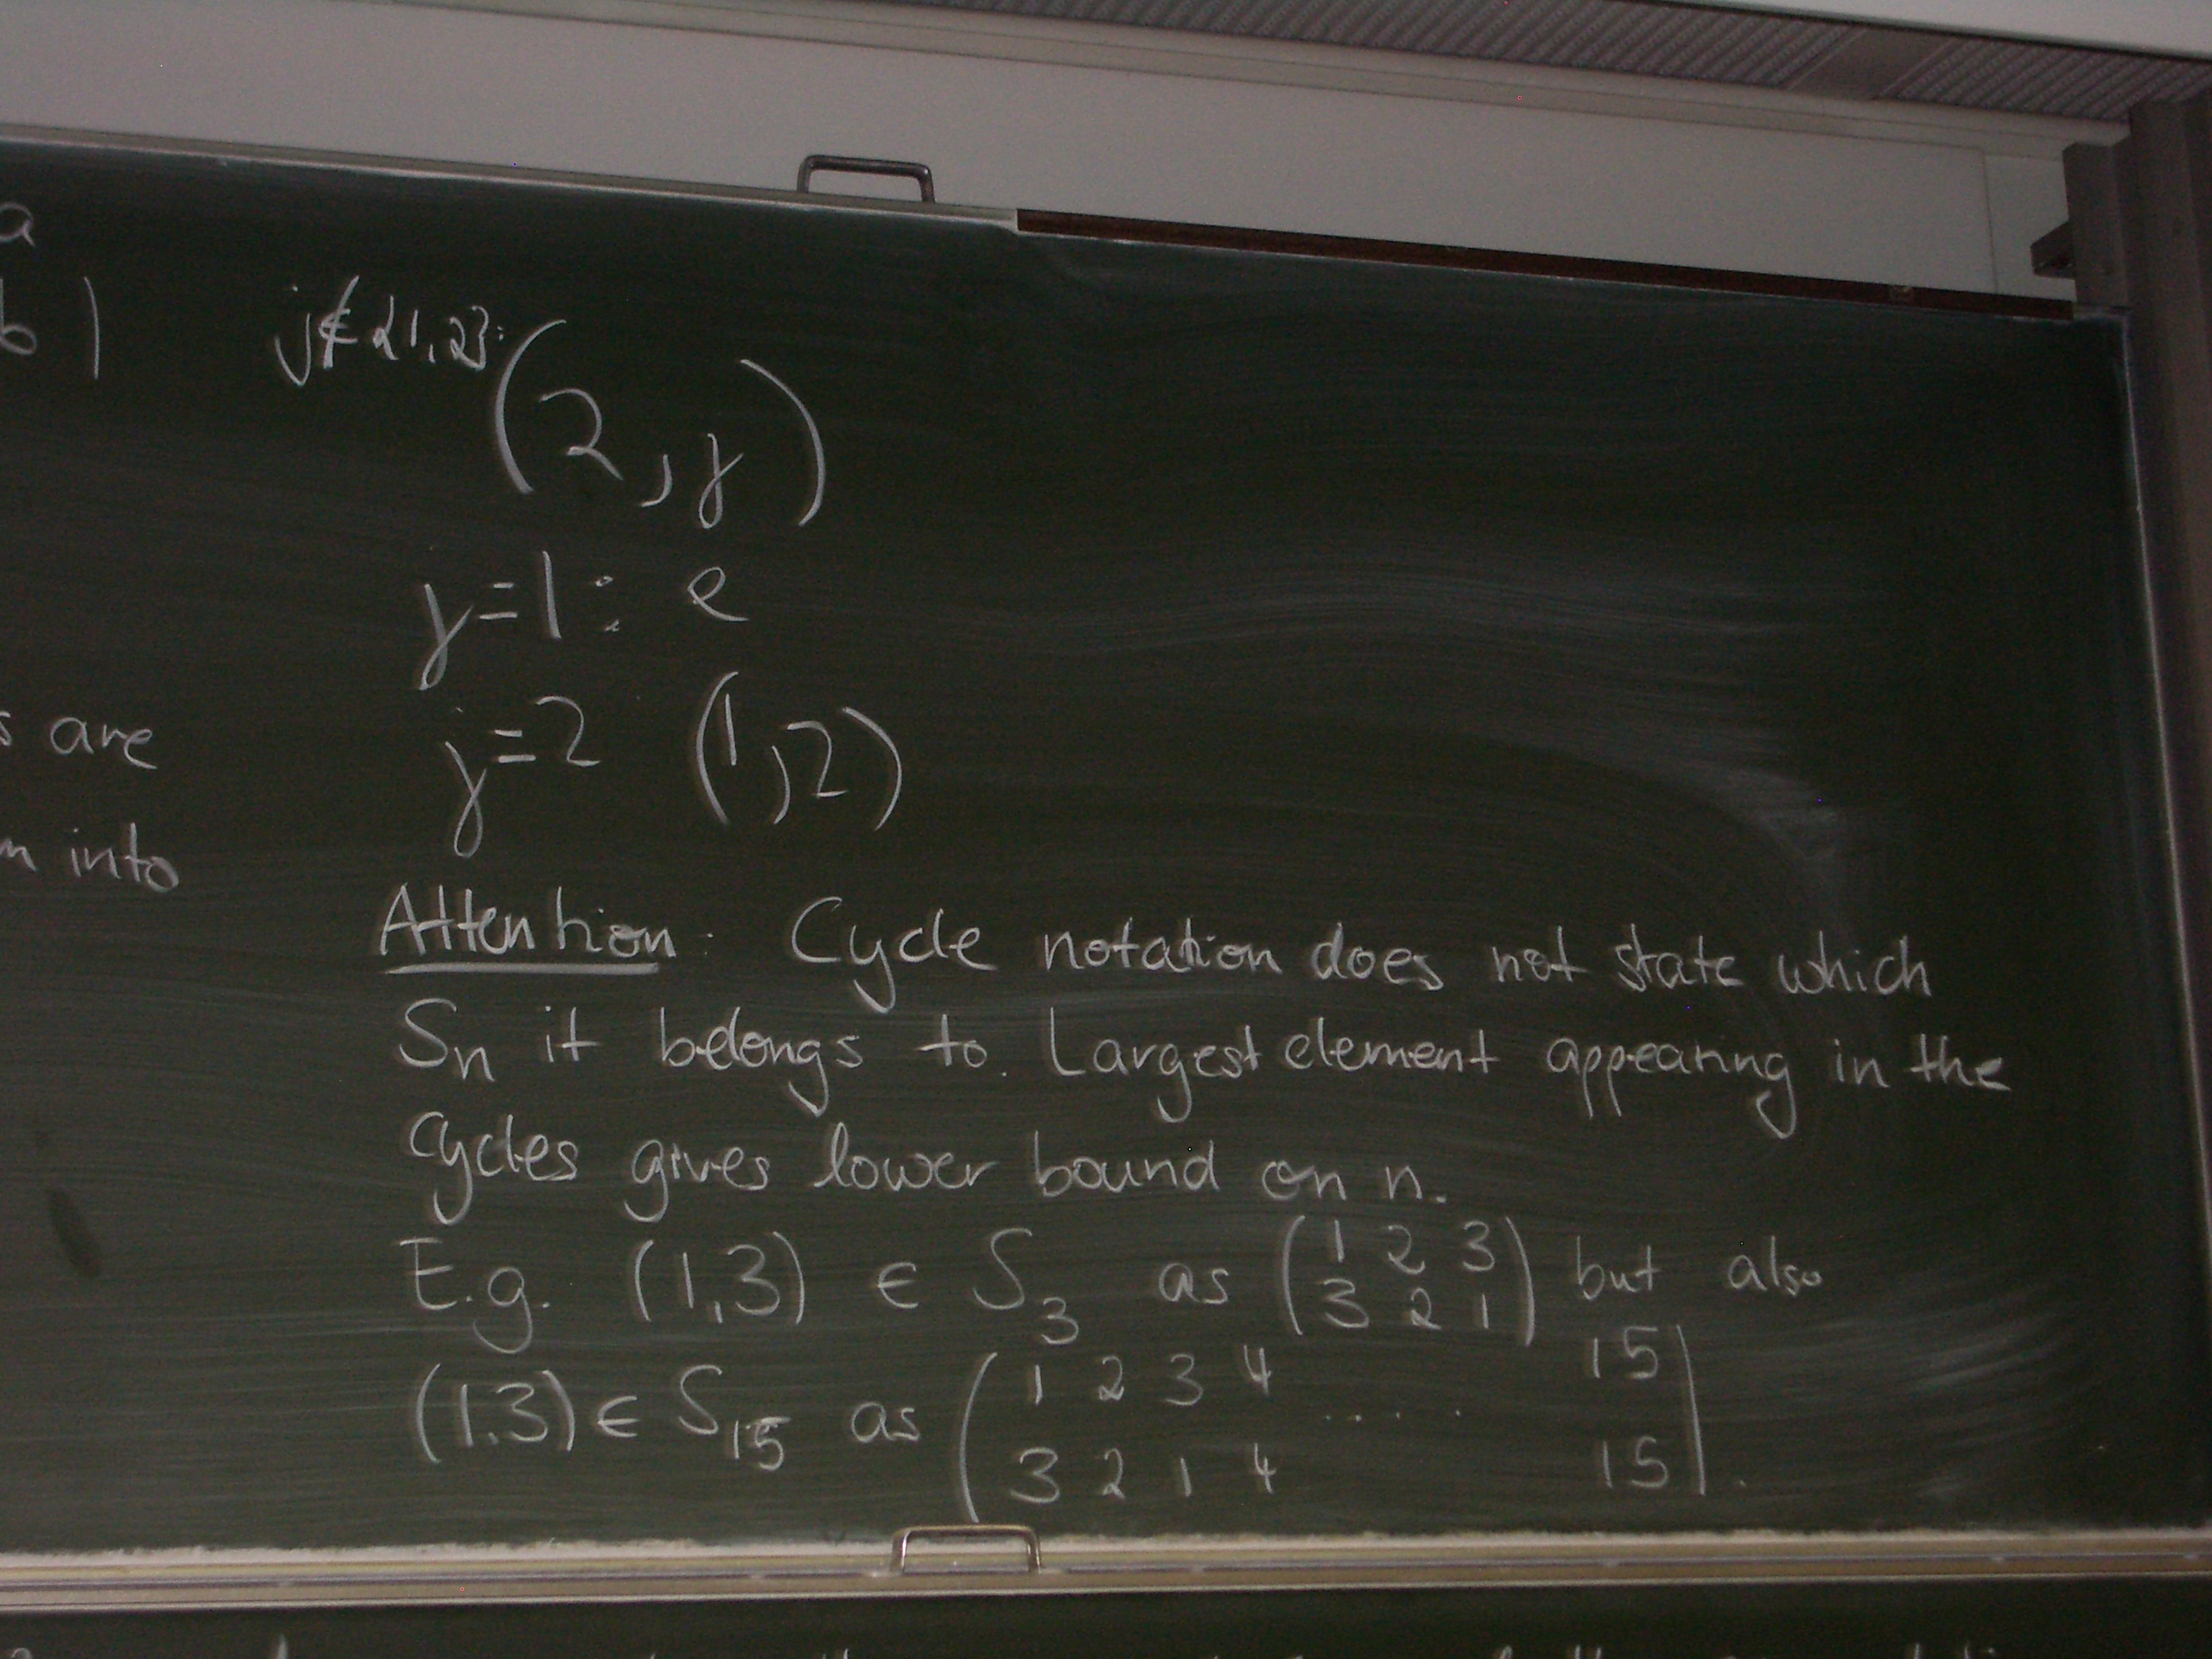 a
b )
j ∉ {1,2}:
(2, j)
j=1: e
j=2 (1,2)
s are
m into
Attention: Cycle notation does not state which
Sn it belongs to. Largest element appearing in the
cycles gives lower bound on n.
E.g. (1,3) ∈ S3 as (1 2 3 but also
3 2 1)
(1.3) ∈ S15 as (1 2 3 4 .... 15
3 2 1 4 15).